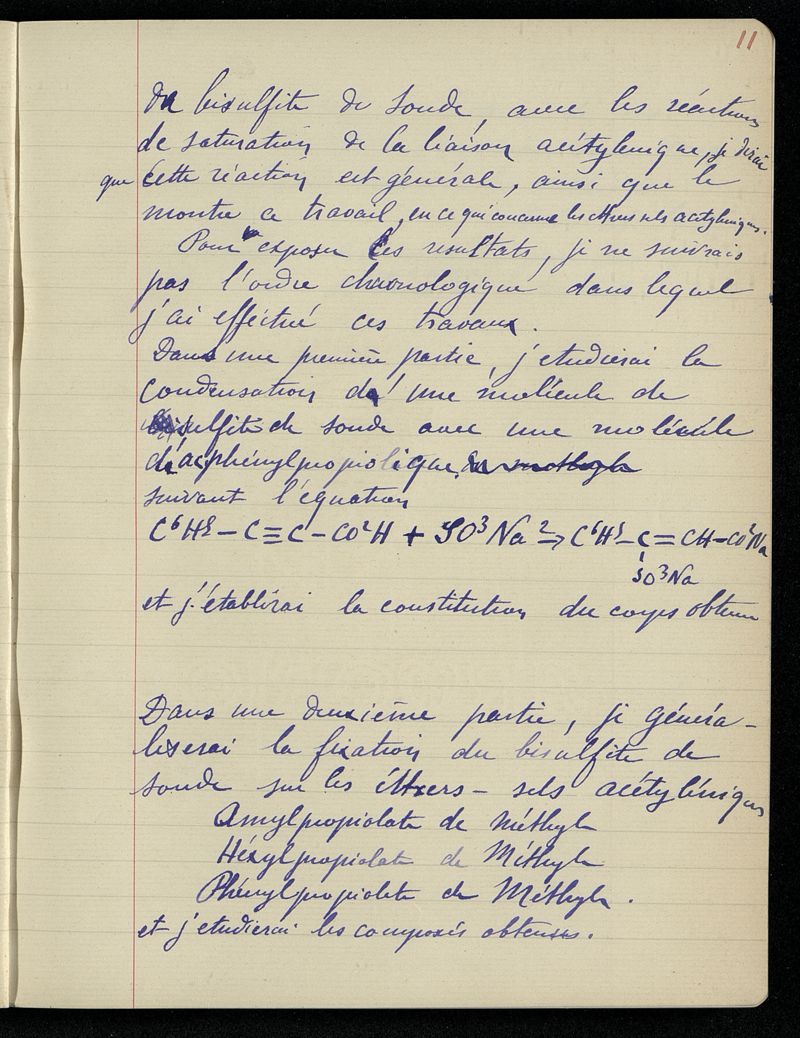 11
du bisulfite de soude, avec les réactions
de saturation de la liaison acétylenique, je dirai
que Cette réaction est générale, ainsi que le
montre ce travail, en ce qui concerne les éthers sels acétyleniques.
Pour exposer les resultats, je ne suivrais
pas l'ordre chronologique dans lequel
j'ai effectué ces travaux.
Dans une première partie, j'etudierai la
Condensation d'une molécule de
bisulfite de soude avec une molécule
d'ac phénylpropiolique, de methyle
suivant l'équation
C⁶H⁵ – C≡C – CO²H + SO³Na² => C⁶H⁵–C=CH–CO²Na
SO³Na
et j'établirai la constitution du corps obtenu
Dans une deuxième partie, je généra-
liserai la fixation du bisulfite de
soude sur les éthers-sels acétyléniques
Amylpropiolate de Méthyle
Héxylpropiolate de Méthyle
Phénylpropiolate de Méthyle.
et j'etudierai les composés obtenus.